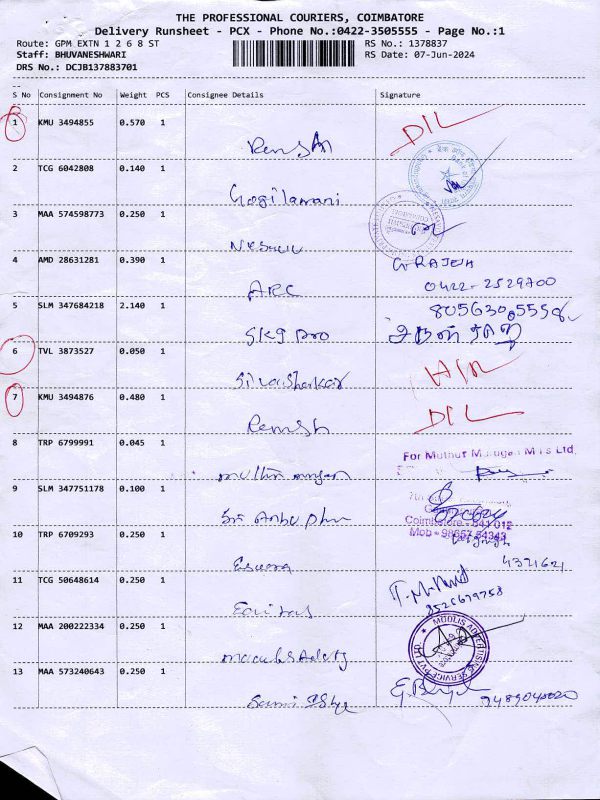 THE PROFESSIONAL COURIERS, COIMBATORE
Delivery Runsheet - PCX - Phone No.:0422-3505555 - Page No.:1
Route: GPM EXTN 1 2 6 8 ST
RS No.: 1378837
Staff: BHUVANESHWARI
RS Date: 07-Jun-2024
DRS No.: DCJB137883701
S No Consignment No Weight PCS Consignee Details Signature
1 KMU 3494855 0.570 1 DIL
2 TCG 6042808 0.140 1 Gogilamani
3 MAA 574598773 0.250 1
4 AMD 28631281 0.390 1 ARC G RAJESH
0422-2529700
5 SLM 347684218 2.140 1 SKG Pro 8056305558
6 TVL 3873527 0.050 1 Sivasharkar
7 KMU 3494876 0.480 1 Ramesh DIL
8 TRP 6799991 0.045 1 For Muthur Murugan Mills Ltd,
9 SLM 347751178 0.100 1
Coimbatore - 641 012
Mob - 98657 54343
10 TRP 6709293 0.250 1 Eswara 4371621
11 TCG 50648614 0.250 1
8526679758
12 MAA 200222334 0.250 1 MODLIS ADVERTISING SERVICE PVT LTD
13 MAA 573240643 0.250 1 9489040020